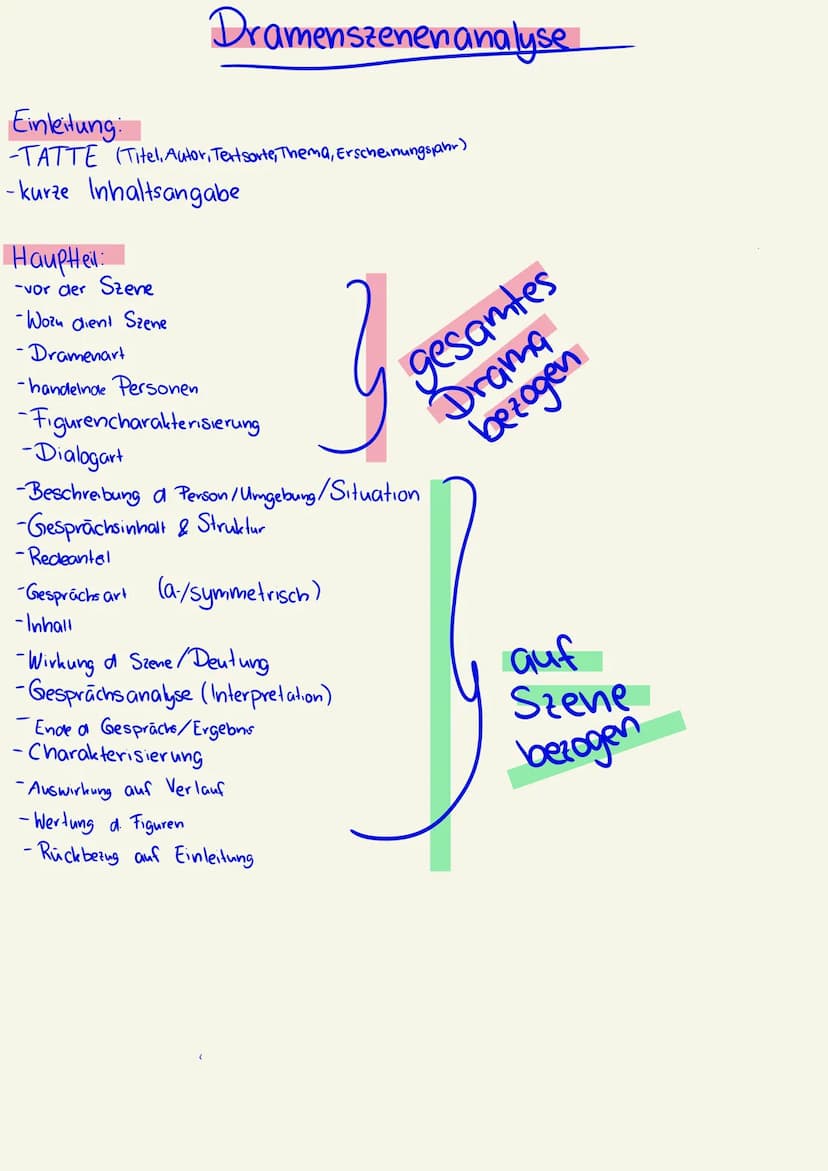 Dramenszenenanalyse
Einleitung:
-TATTE (Titel, Autor, Textsorte, Thema, Erscheinungsjahr)
-kurze Inhaltsangabe
Hauptteil:
-vor der Szene
-Wozu dient Szene
-Dramenart
-handelnde Personen
-Figurencharakterisierung
-Dialogart
gesamtes
Drama
bezogen
-Beschreibung d Person/Umgebung/Situation
-Gesprächsinhalt & Struktur
-Redeanteil
-Gesprächsart (a-/symmetrisch)
-Inhalt
-Wirkung d Szene/Deutung
-Gesprächsanalyse (Interpretation)
-Ende d Gesprächs/Ergebnis
-Charakterisierung
-Auswirkung auf Verlauf
-Wertung d. Figuren
-Rückbezug auf Einleitung
auf
Szene
bezogen